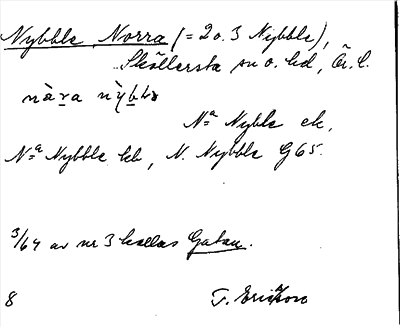 Nybble, Norra (= 2 o. 3 Nybble),
Sköllersta sn o. hd, Ör. l.
nὰra nỳbbɘ
Nᵃ Nybble ek,
Nᵃ Nybble hb, N. Nybble G 65.
3/64 av nr 3 kallas Gatan.
8 T. Ericsson